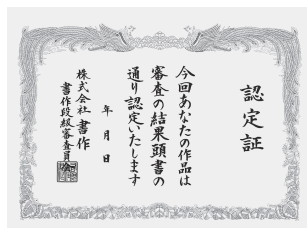 認定証
今回あなたの作品は
審査の結果頭書の
通り認定いたします
年月日
株式会社書作
書作段級審査員